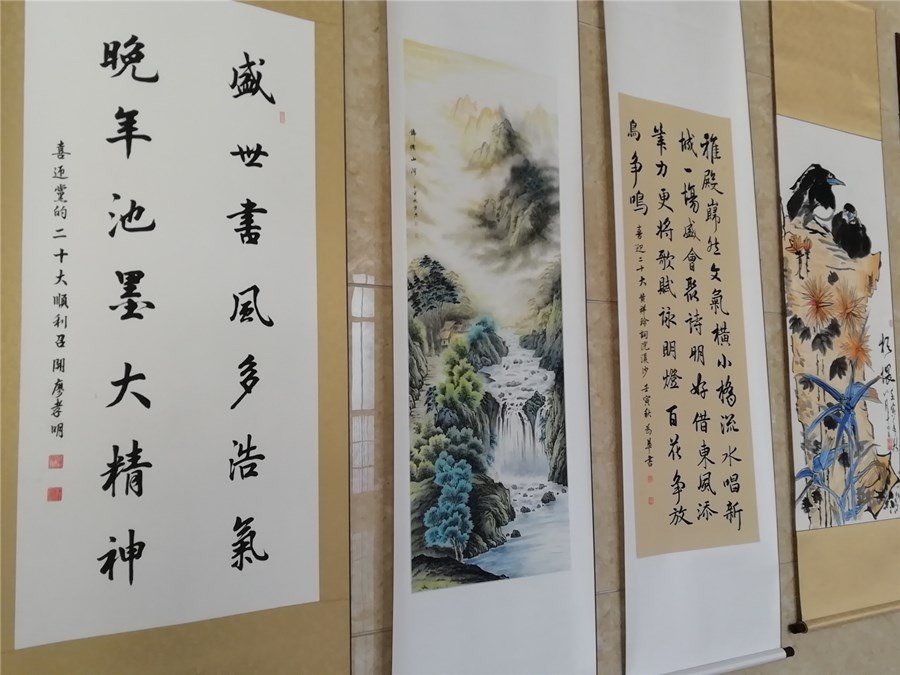 盛世書風多浩氣
晚年池墨大精神
喜迎黨的二十大順利召開廖孝明
山河
雅殿巋然文氣橫小橋流水唱新
城一場盛會聚詩明好借東風添
筆力更將歌賦詠明燈百花争放
鳥争鳴
喜迎二十大 黄祥玲詞浣溪沙 壬寅秋 書